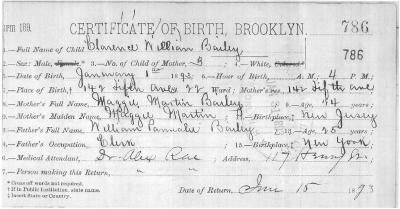 FORM 189. CERTIFICATE OF BIRTH, BROOKLYN. 786
1.—Full Name of Child Clarence William Bailey
2.—Sex: Male, Female.* 3.—No. of Child of Mother, 3 White, Colored.* 786
5.—Date of Birth, January 1st 1893 6.—Hour of Birth, A. M.; 4 P. M.;
7.—Place of Birth, 142 Fifth Ave 22 Ward; Mother's Res. 142 Fifth Ave
8.—Mother's Full Name, Maggie Martin Bailey Age, years.
Mother's Maiden Name, Maggie Martin Birthplace, New Jersey
Father's Full Name, William Bailey Age, 25 years.
Father's Occupation, Clerk 15.—Birthplace, New York
Medical Attendant, Dr Alex Rae Address, 117 Henry St.
7.—Person making this Return, " " " "
* Cross off words not required.
† If in Public Institution, state name.
‡ Insert State or Country.
Date of Return, 15 1893